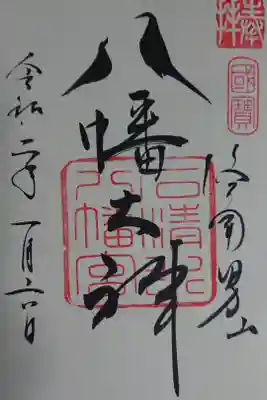 奉拝
國寶
洛南男山
八幡大神
石清水
八幡宮
令和二年一月 日